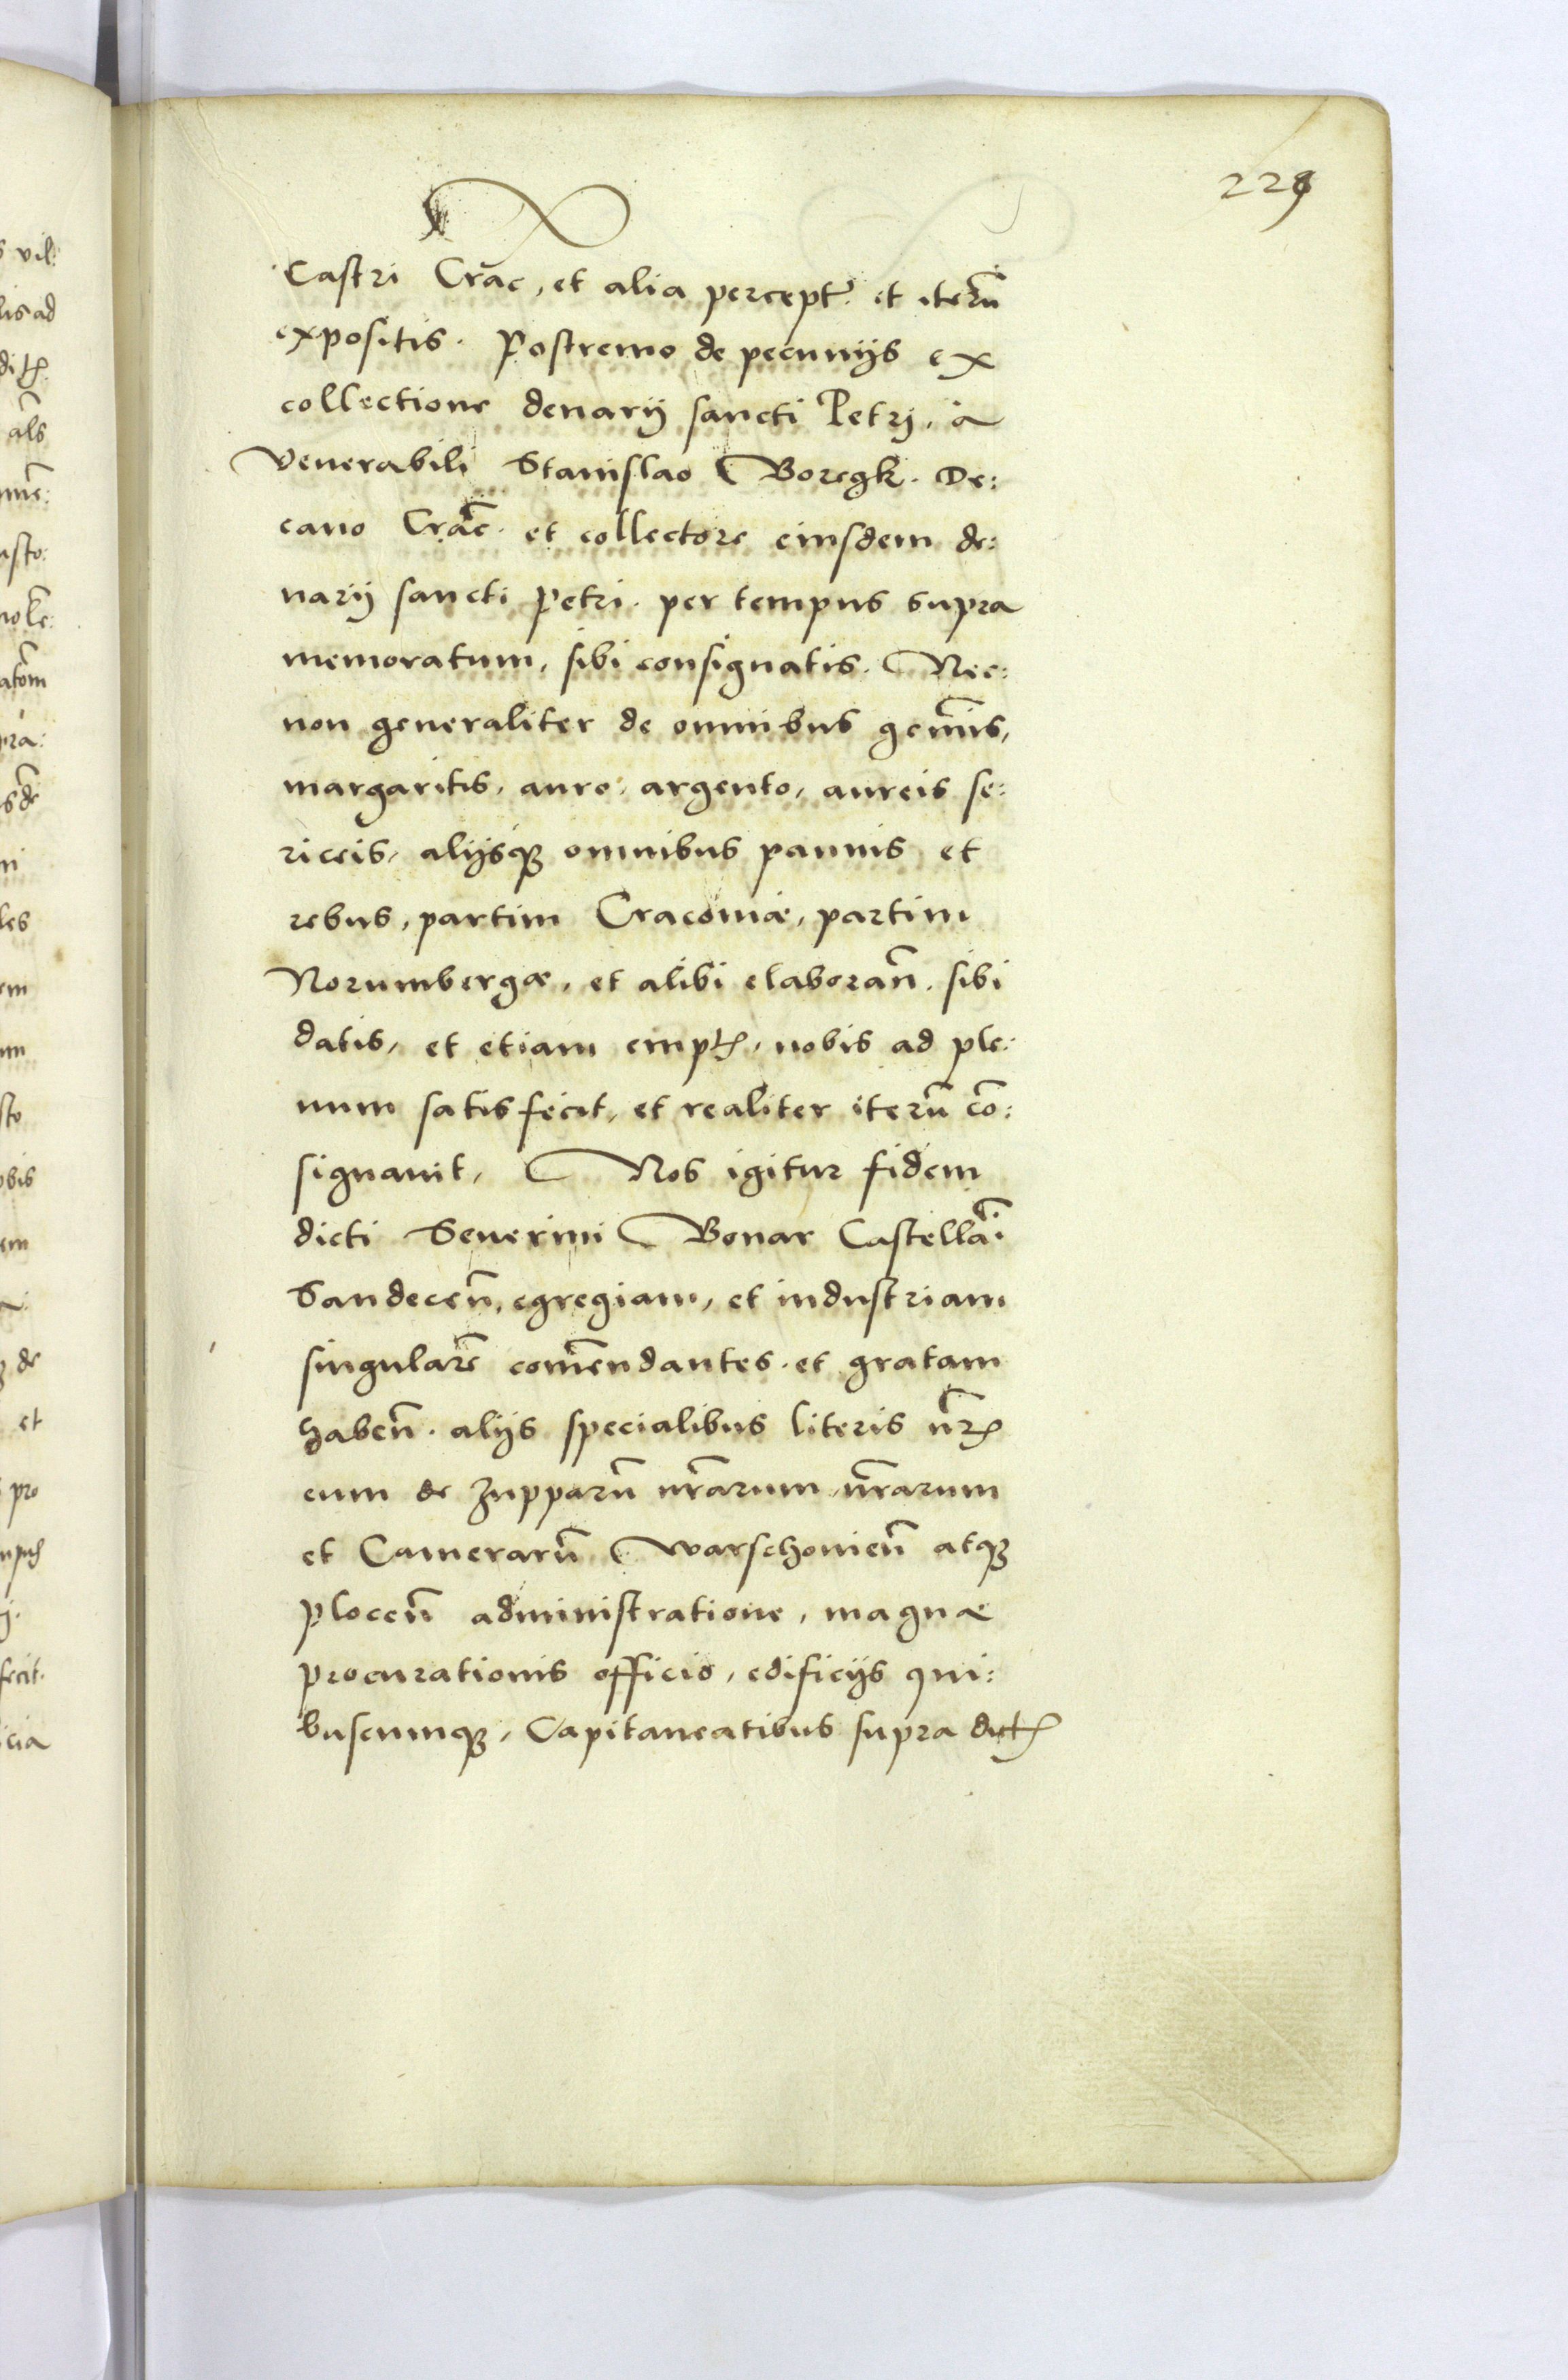 229
Castri Crac̃, et alia percept̃. et iterũ
expositis. Postremo de pecunijs ex
collectione denarij sancti Petrj, à
Venerabili Stanislao Boregk. De:
cano Crac̃. et collectore eiusdem de:
narij sancti Petri. per tempus supra
memoratum, sibi consignatis. Nec:
non generaliter de omnibus gem̃is,
margaritis, auro, argento, aureis se:
riceis, alijsqꝫ omnibus pannis et
rebus, partim Cracoviæ, partim
Norumbergæ, et alibi elaborañ. sibi
datis, et etiam emptꝭ, nobis ad ple:
num satisfecit, et realiter iterũ cõ:
signauit, Nos igitur fidem
dicti Seuerini Bonar Castellãi
Sandeceñ, egregiam, et industriam
singularẽ com̃endantes. et gratam
habeñ. alijs specialibus literis ñrꝭ
eum de Zupparũ nr̃arum, nr̃arum
et Camerarũ Warschouieñ atqꝫ
Ploceñ administratione, magnæ
procurationis officio, edificijs qui:
buscunqꝫ, Capitaneatibus supra dictꝭ